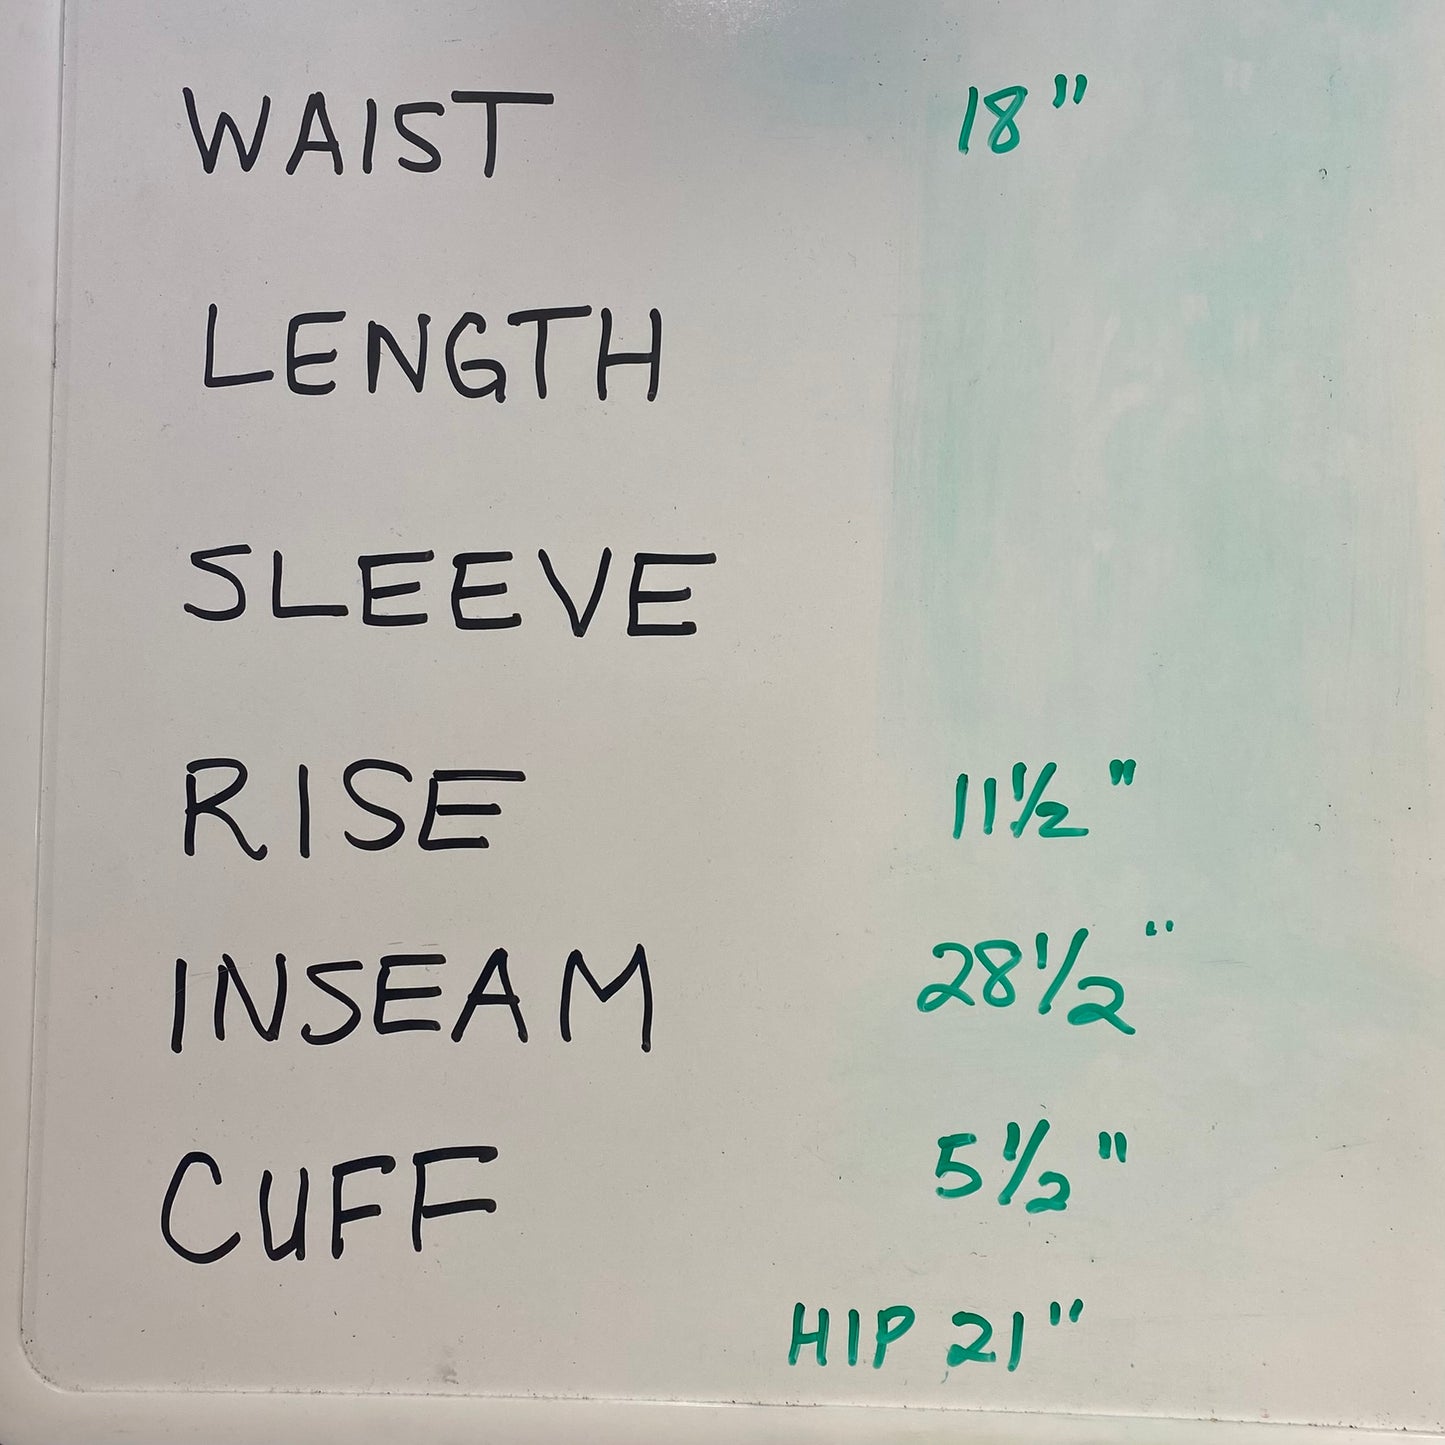 WAIST 18"
LENGTH
SLEEVE
RISE 11½"
INSEAM 28½"
CUFF 5½"
HIP 21"